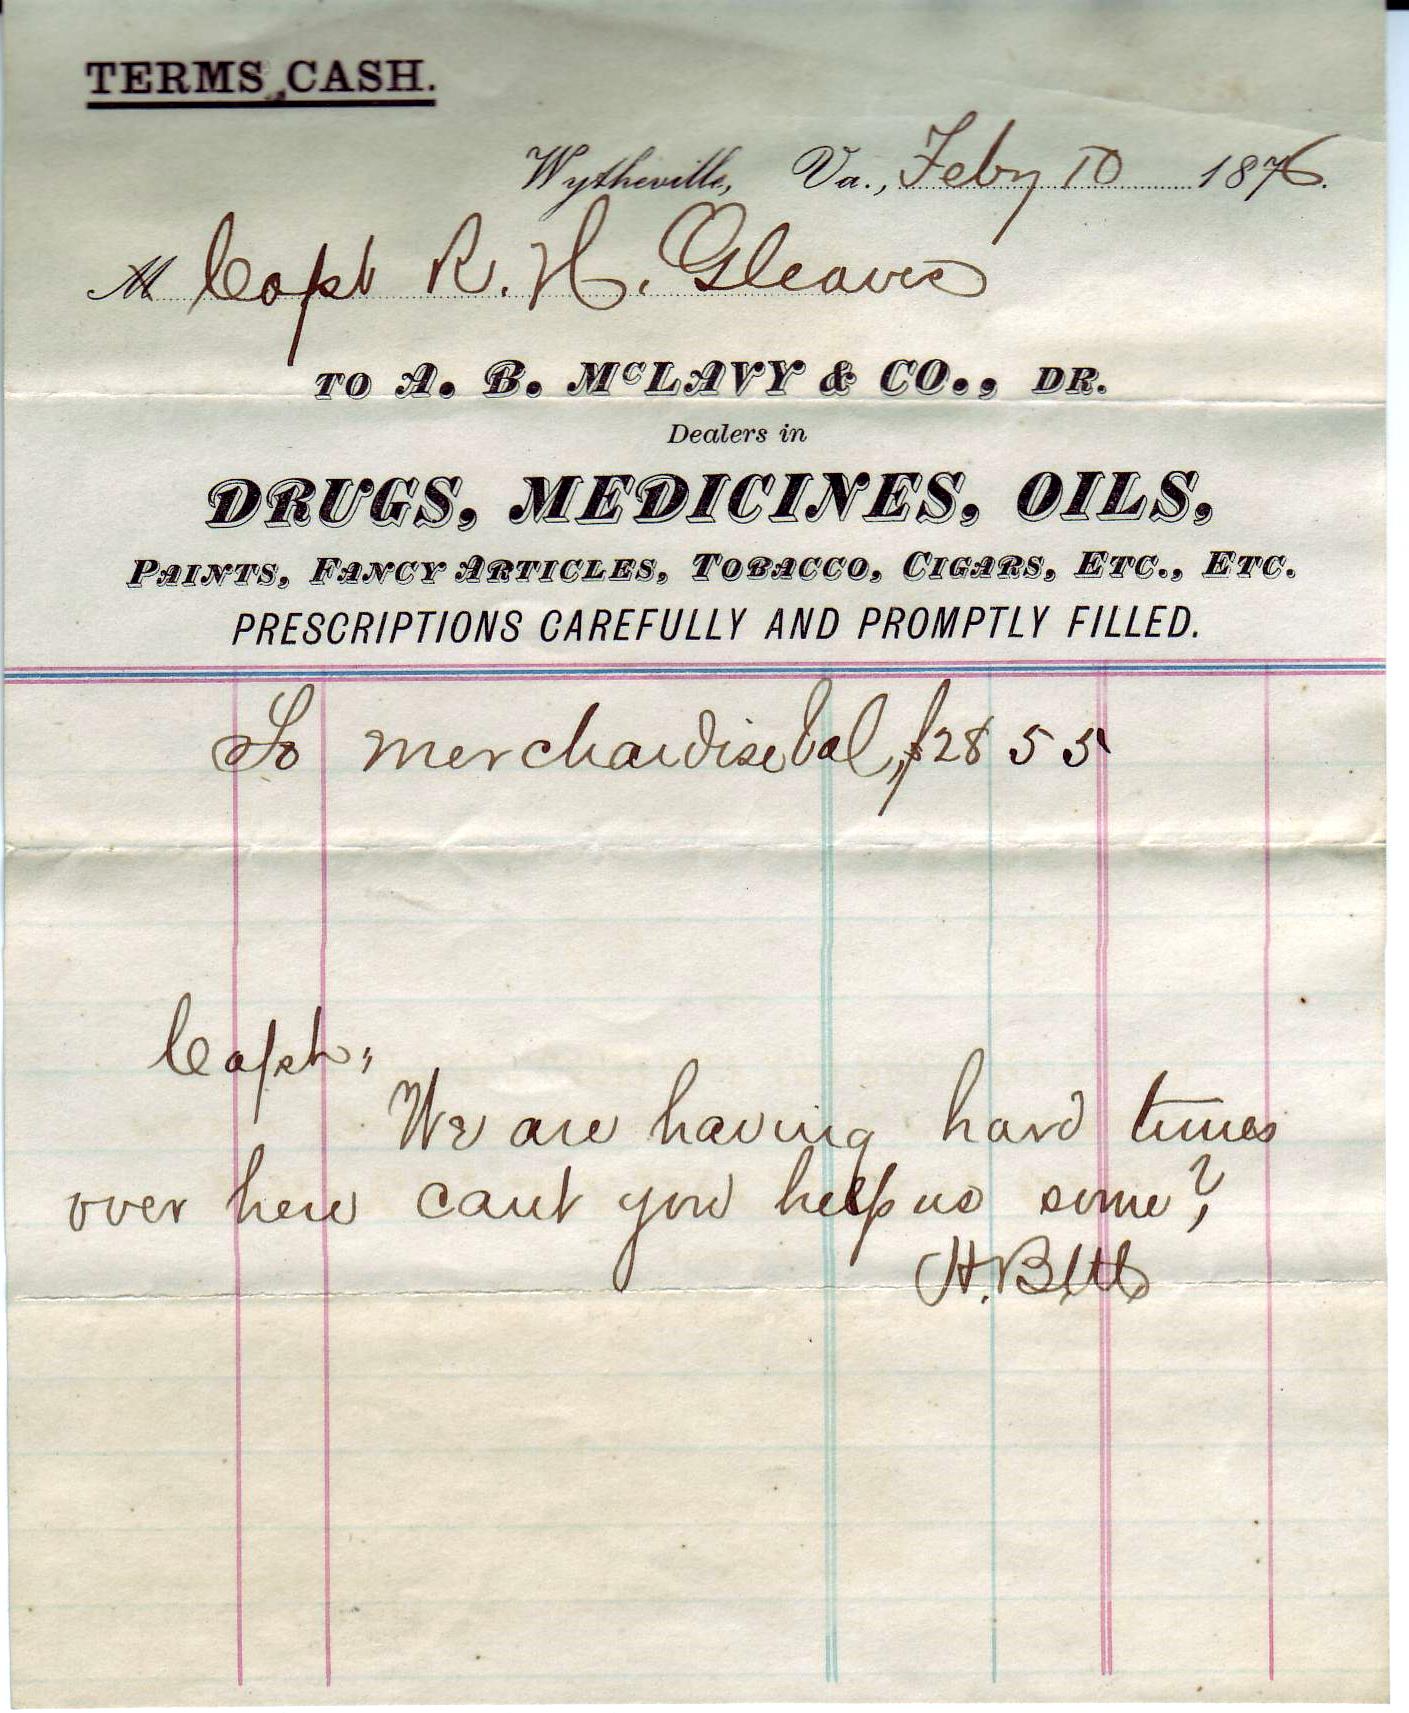 TERMS CASH.
Wytheville, Va., Feby 10 1876.
M Capt R. H. Gleaves
TO A. B. McLAVY & CO., DR.
Dealers in
DRUGS, MEDICINES, OILS,
PAINTS, FANCY ARTICLES, TOBACCO, CIGARS, ETC., ETC.
PRESCRIPTIONS CAREFULLY AND PROMPTLY FILLED.
To merchandise bal, $28 55
Capt,
We are having hard times
over here cant you help us some?
H.